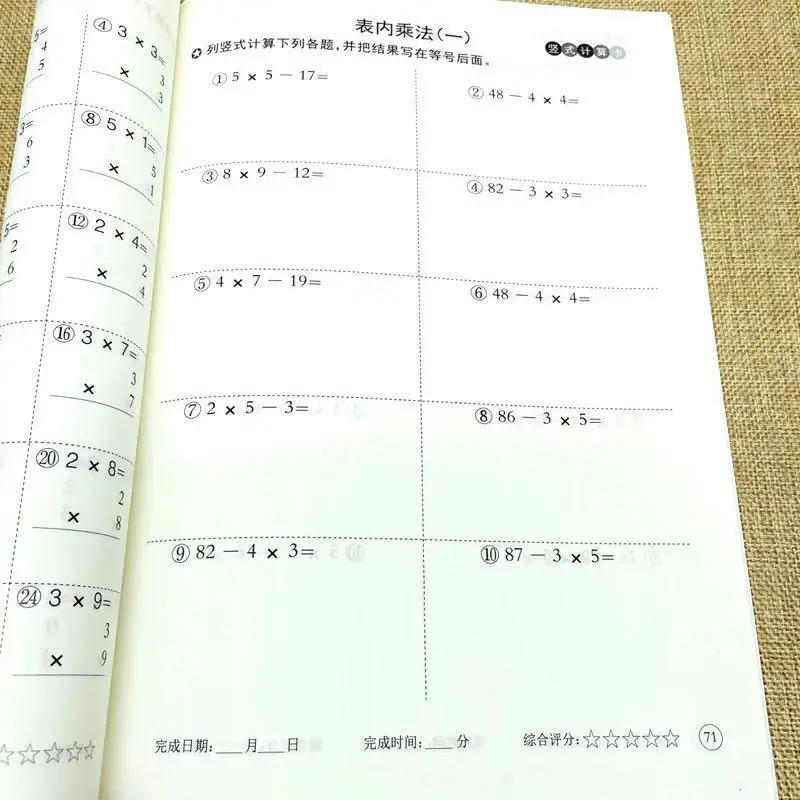 5=
4
5
④ 3 × 3=
3
× 3
3=
6
3
⑧ 5 × 1=
5
× 1
5=
2
6
⑫ 2 × 4=
2
× 4
⑯ 3 × 7=
3
× 7
⑳ 2 × 8=
2
× 8
㉔ 3 × 9=
3
× 9
表内乘法(一)
竖式计算卡
✪ 列竖式计算下列各题,并把结果写在等号后面。
① 5 × 5 − 17=
② 48 − 4 × 4=
③ 8 × 9 − 12=
④ 82 − 3 × 3=
⑤ 4 × 7 − 19=
⑥ 48 − 4 × 4=
⑦ 2 × 5 − 3=
⑧ 86 − 3 × 5=
⑨ 82 − 4 × 3=
⑩ 87 − 3 × 5=
完成日期:___月___日 完成时间:___分 综合评分:☆☆☆☆☆ 71